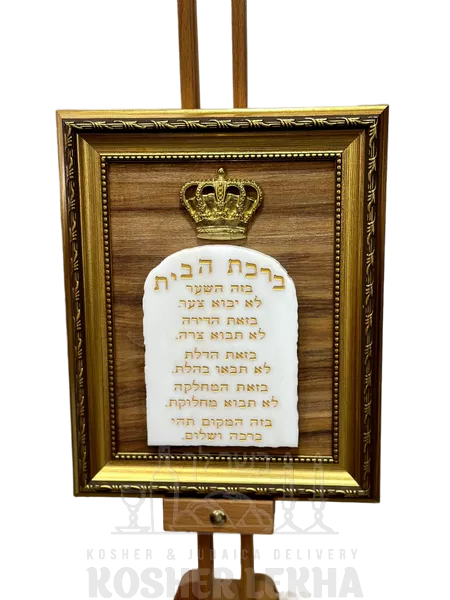 ברכת הבית
בזה השער
לא יבוא צער.
בזאת הדירה
לא תבוא צרה.
בזאת הדלת
לא תבאו בהלת.
בזאת המחלקה
לא תבוא מחלוקת.
בזה המקום תהי
ברכה ושלום.
KOSHER & JUDAICA DELIVERY
KOSHER LEKHA